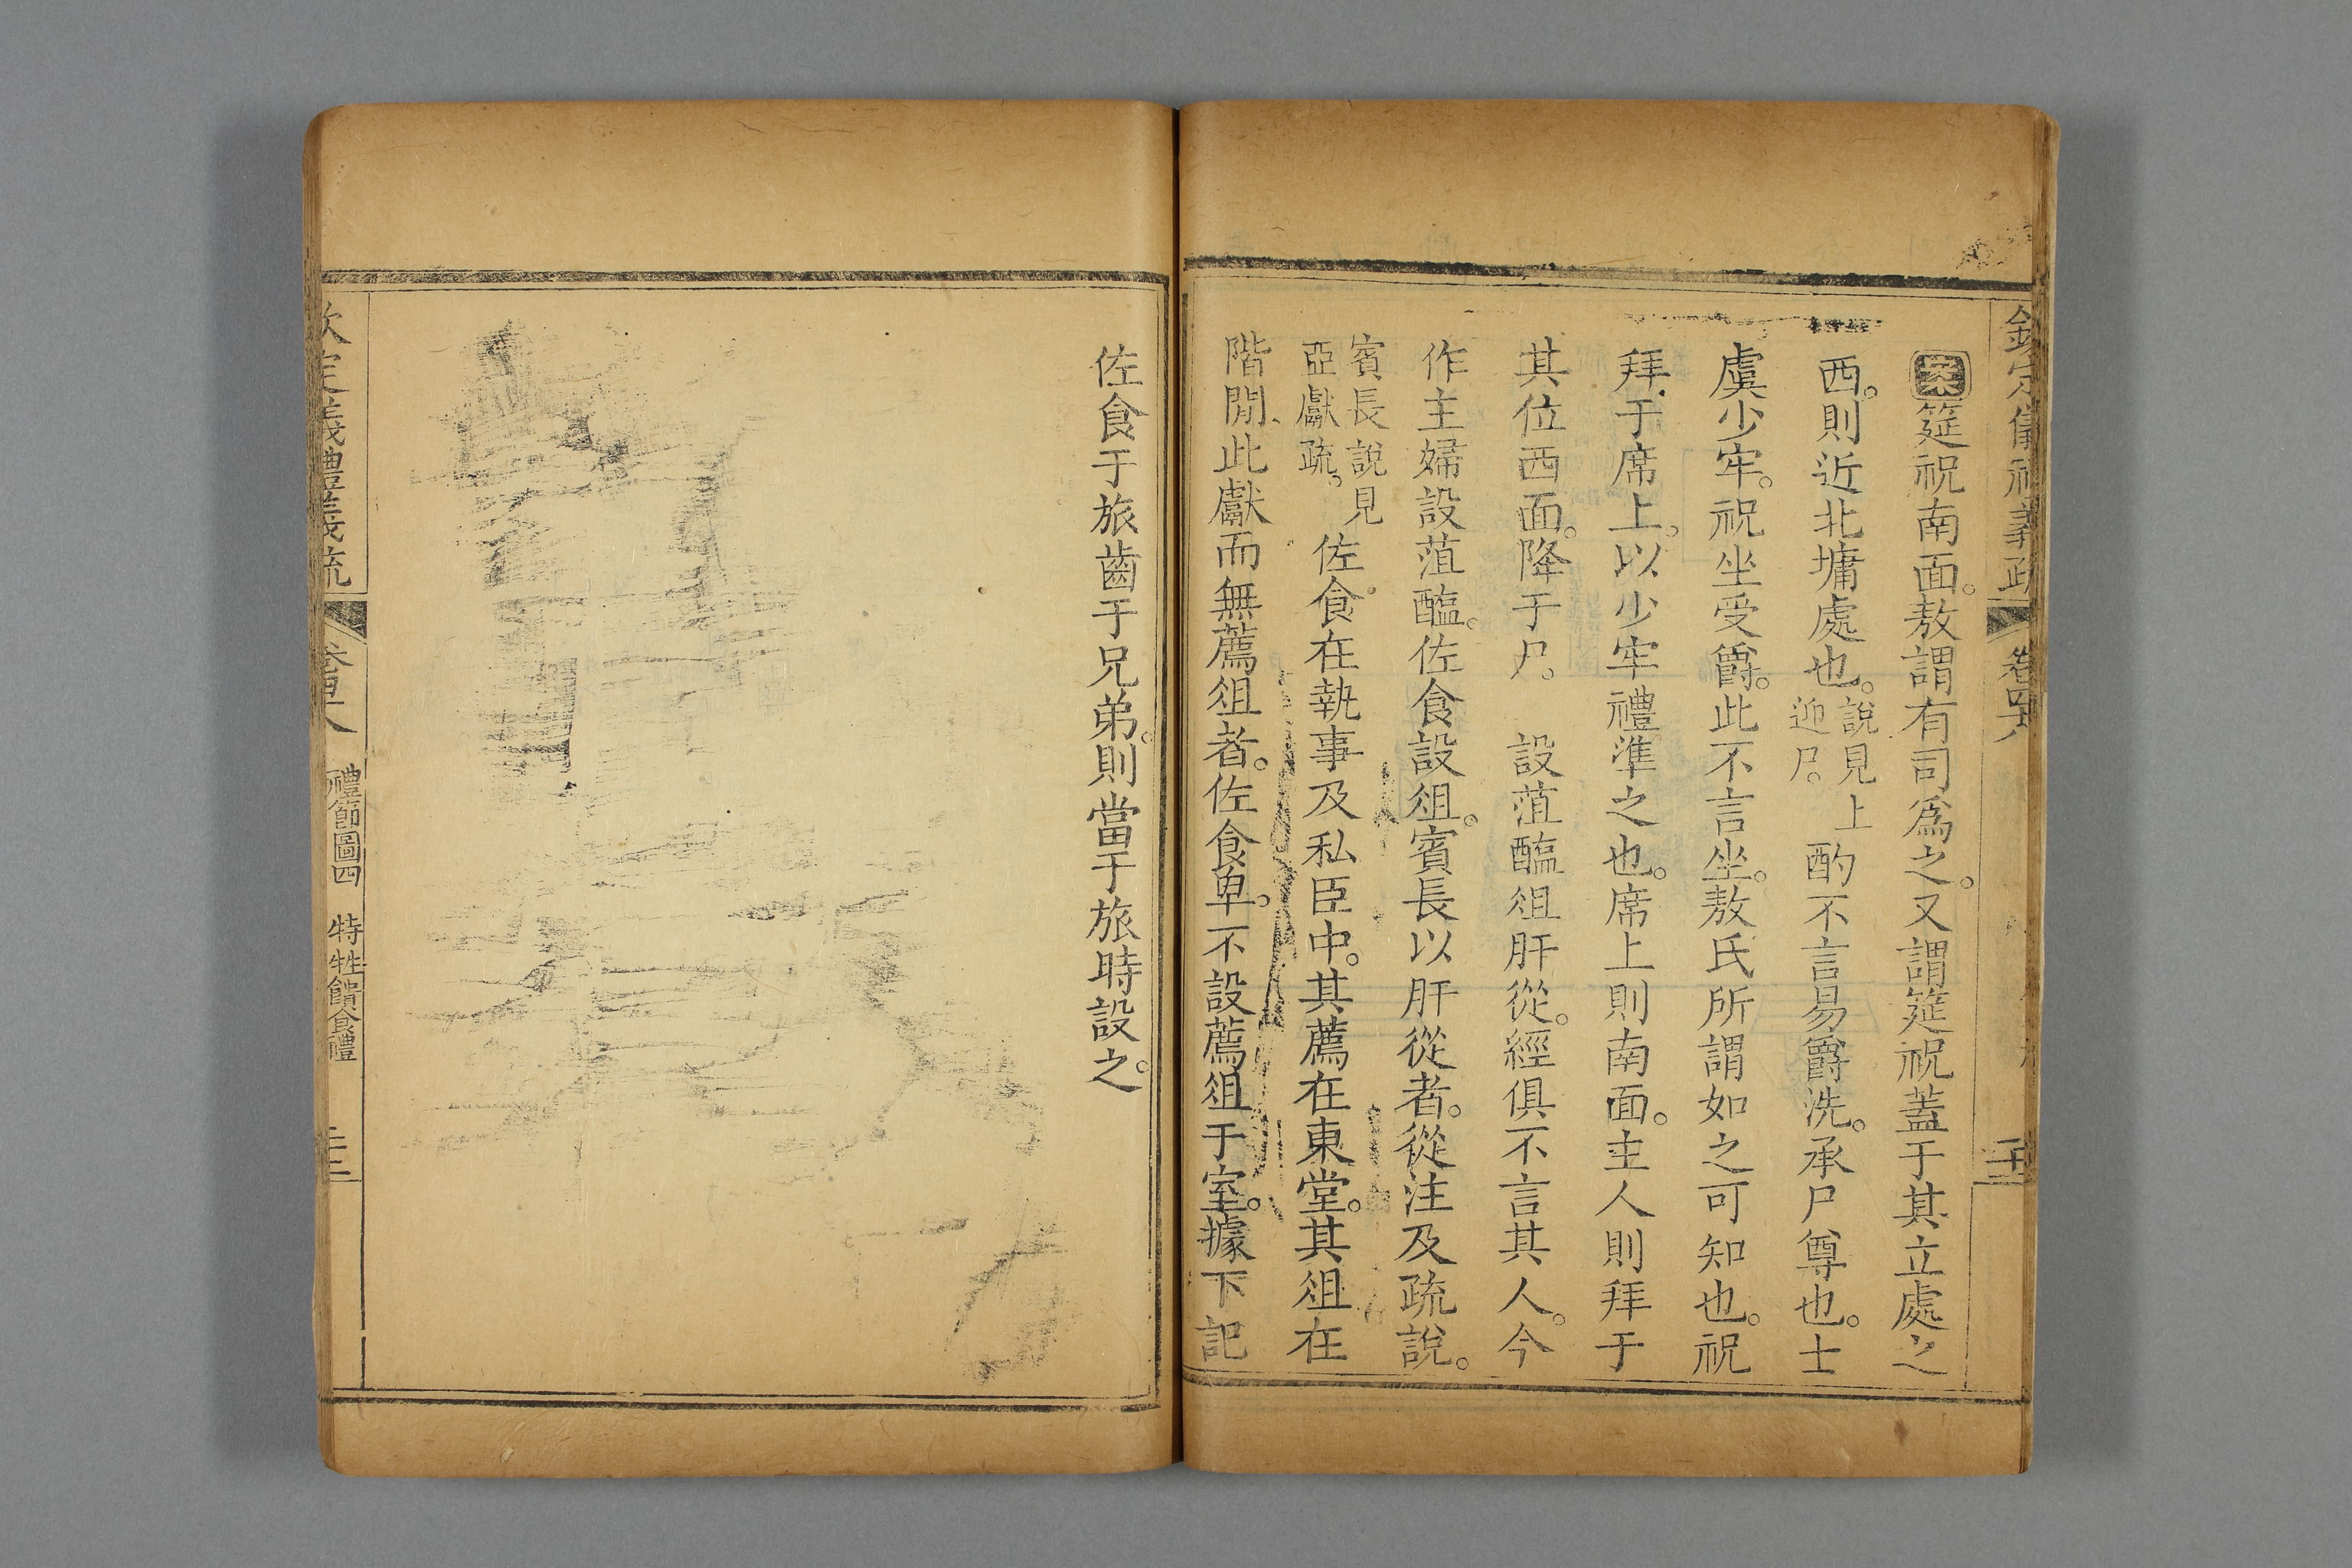 欽定儀禮義疏 卷四十八 二十三
案筵祝南面。敖謂有司爲之。又謂筵祝蓋于其立處之
西。則近北墉處也。說見上迎尸。酌不言易爵洗。承尸尊也。士
虞少牢。祝坐受爵。此不言坐。敖氏所謂如之可知也。祝
拜于席上。以少牢禮準之也。席上則南面。主人則拜于
其位西面。降于尸。 設菹醢俎肝從。經俱不言其人。今
作主婦設菹醢。佐食設俎。賓長以肝從者。從注及疏說。
賓長說見亞獻疏。 佐食在執事及私臣中。其薦在東堂。其俎在
階閒、此獻而無薦俎者。佐食卑。不設薦俎于室。據下記
佐食于旅齒于兄弟。則當于旅時設之。
欽定儀禮義疏 卷四十八 禮節圖四 特牲饋食禮 二十三